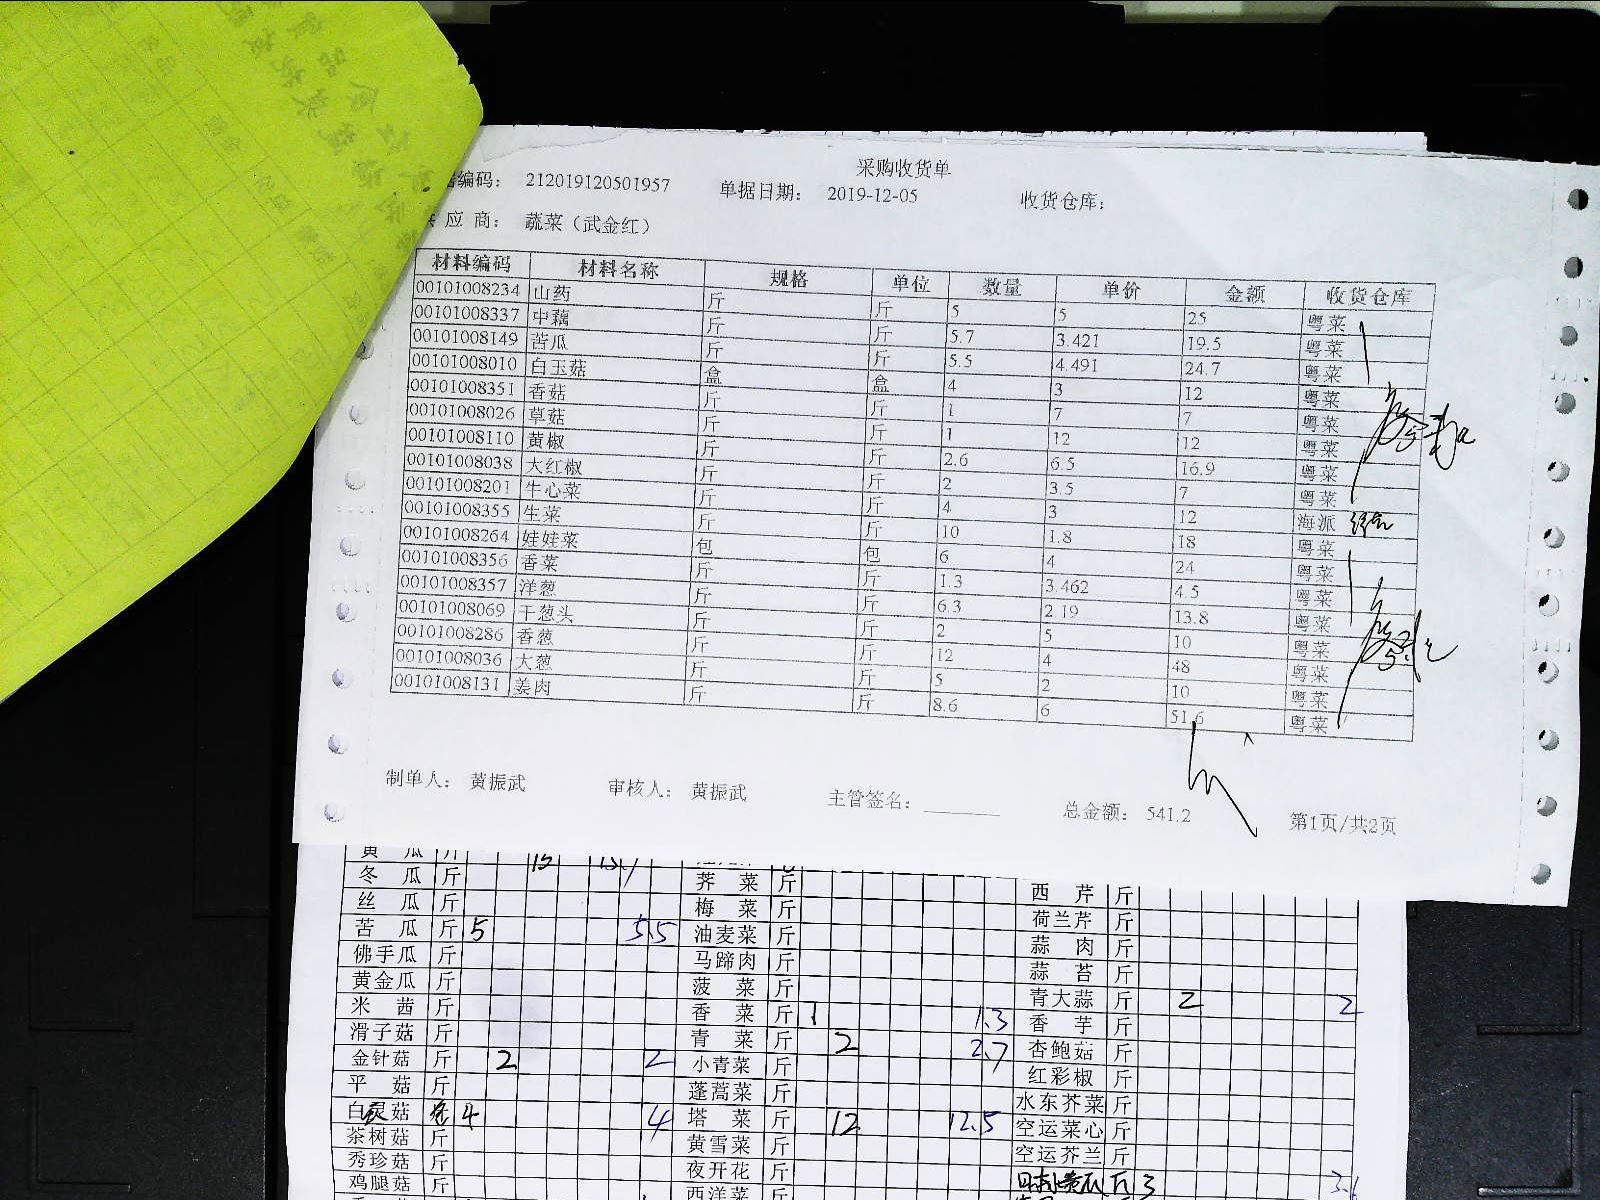 采购收货单
编码： 212019120501957 单据日期： 2019-12-05 收货仓库：
应 商： 蔬菜（武金红）
材料编码 材料名称 规格 单位 数量 单价 金额 收货仓库
00101008234 山药 斤 斤 5 5 25 粤菜
00101008337 中藕 斤 斤 5.7 3.421 19.5 粤菜
00101008149 苦瓜 斤 斤 5.5 4.491 24.7 粤菜
00101008010 白玉菇 盒 盒 4 3 12 粤菜
00101008351 香菇 斤 斤 1 7 7 粤菜
00101008026 草菇 斤 斤 1 12 12 粤菜
00101008110 黄椒 斤 斤 2.6 6.5 16.9 粤菜
00101008038 大红椒 斤 斤 2 3.5 7 粤菜
00101008201 牛心菜 斤 斤 4 3 12 海派
00101008355 生菜 斤 斤 10 1.8 18 粤菜
00101008264 娃娃菜 包 包 6 4 24 粤菜
00101008356 香菜 斤 斤 1.3 3.462 4.5 粤菜
00101008357 洋葱 斤 斤 6.3 2.19 13.8 粤菜
00101008069 干葱头 斤 斤 2 5 10 粤菜
00101008286 香葱 斤 斤 12 4 48 粤菜
00101008036 大葱 斤 斤 5 2 10 粤菜
00101008131 姜肉 斤 斤 8.6 6 51.6 粤菜
制单人： 黄振武 审核人： 黄振武 主管签名： 总金额： 541.2 第1页/共2页
黄 瓜 斤 15
冬 瓜 斤 荠 菜 斤 西 芹 斤
丝 瓜 斤 梅 菜 斤 荷兰芹 斤
苦 瓜 斤 5 5.5 油麦菜 斤 蒜 肉 斤
佛手瓜 斤 马蹄肉 斤 蒜 苔 斤
黄金瓜 斤 菠 菜 斤 青大蒜 斤 2 2
米 茜 斤 香 菜 斤 1 1.3 香 芋 斤
滑子菇 斤 青 菜 斤 2 2.7 杏鲍菇 斤
金针菇 斤 2 2 小青菜 斤 红彩椒 斤
平 菇 斤 蓬蒿菜 斤 水东芥菜 斤
白灵菇 4 4 塔 菜 斤 12 12.5 空运菜心 斤
茶树菇 斤 黄雪菜 斤 空运芥兰 斤
秀珍菇 斤 夜开花 斤 斤 3 3.6
鸡腿菇 斤 西洋菜 斤